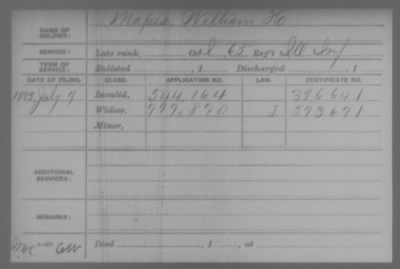 NAME OF SOLDIER: Mapes William H
SERVICE: Late rank, Co. I, 65 Reg't Ill Inf
TERM OF SERVICE: Enlisted , 1 Discharged , 1
DATE OF FILING. CLASS. APPLICATION NO. LAW. CERTIFICATE NO.
Invalid, 544,164 376641
1895 July 9 Widow, 797,870 J 573671
Minor,
ADDITIONAL SERVICES:
REMARKS:
Died , 1 , at